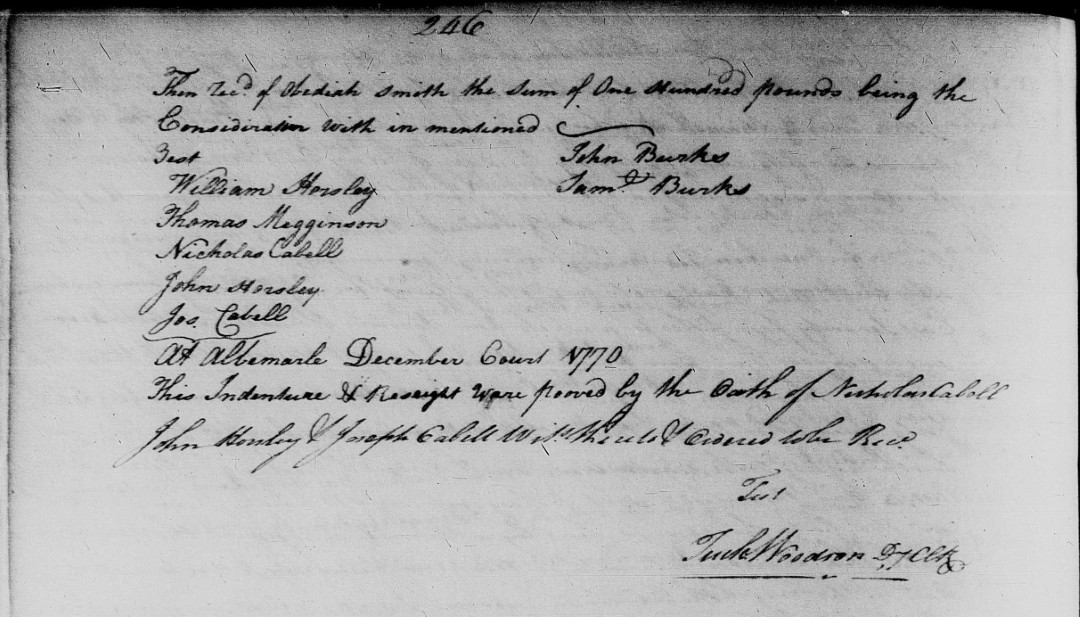 246
Then Recd. of Obediah Smith the Sum of One Hundred pounds being the
Consideration with in mentioned
Test
John Burks
William Horsley
Saml. Burks
Thomas Megginson
Nicholas Cabell
John Horsley
Jos. Cabell
At Albemarle December Court 1770
This Indenture & Reseight ware prooved by the Oath of Nicholas Cabell
John Horsley & Joseph Cabell Wits. thereto & Ordered to be Recd.
Test
Tuck Woodson Dy Clk